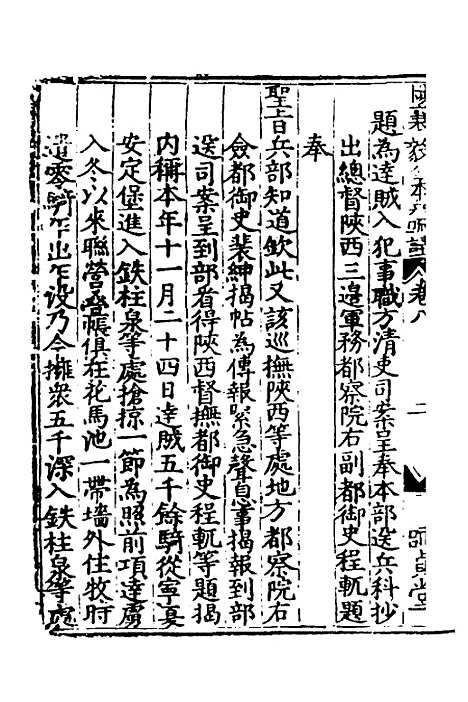 卷八
二
題為達賊入犯事職方清吏司案呈奉本部送兵科抄
出總督陝西三邊軍務都察院右副都御史程軏題
奉
聖旨兵部知道欽此又該巡撫陝西等處地方都察院右
僉都御史裴紳揭帖為傳報緊急聲息事揭報到部
送司案呈到部看得陝西督撫都御史程軏等題揭
內稱本年十一月二十四日達賊五千餘騎從寧夏
安定堡進入鉄柱泉等處搶掠一節為照前項達虜
入冬以來聯營疊帳俱在花馬池一帶墻外住牧時
遣零騎乍出乍沒乃今擁衆五千深入鉄柱泉等處